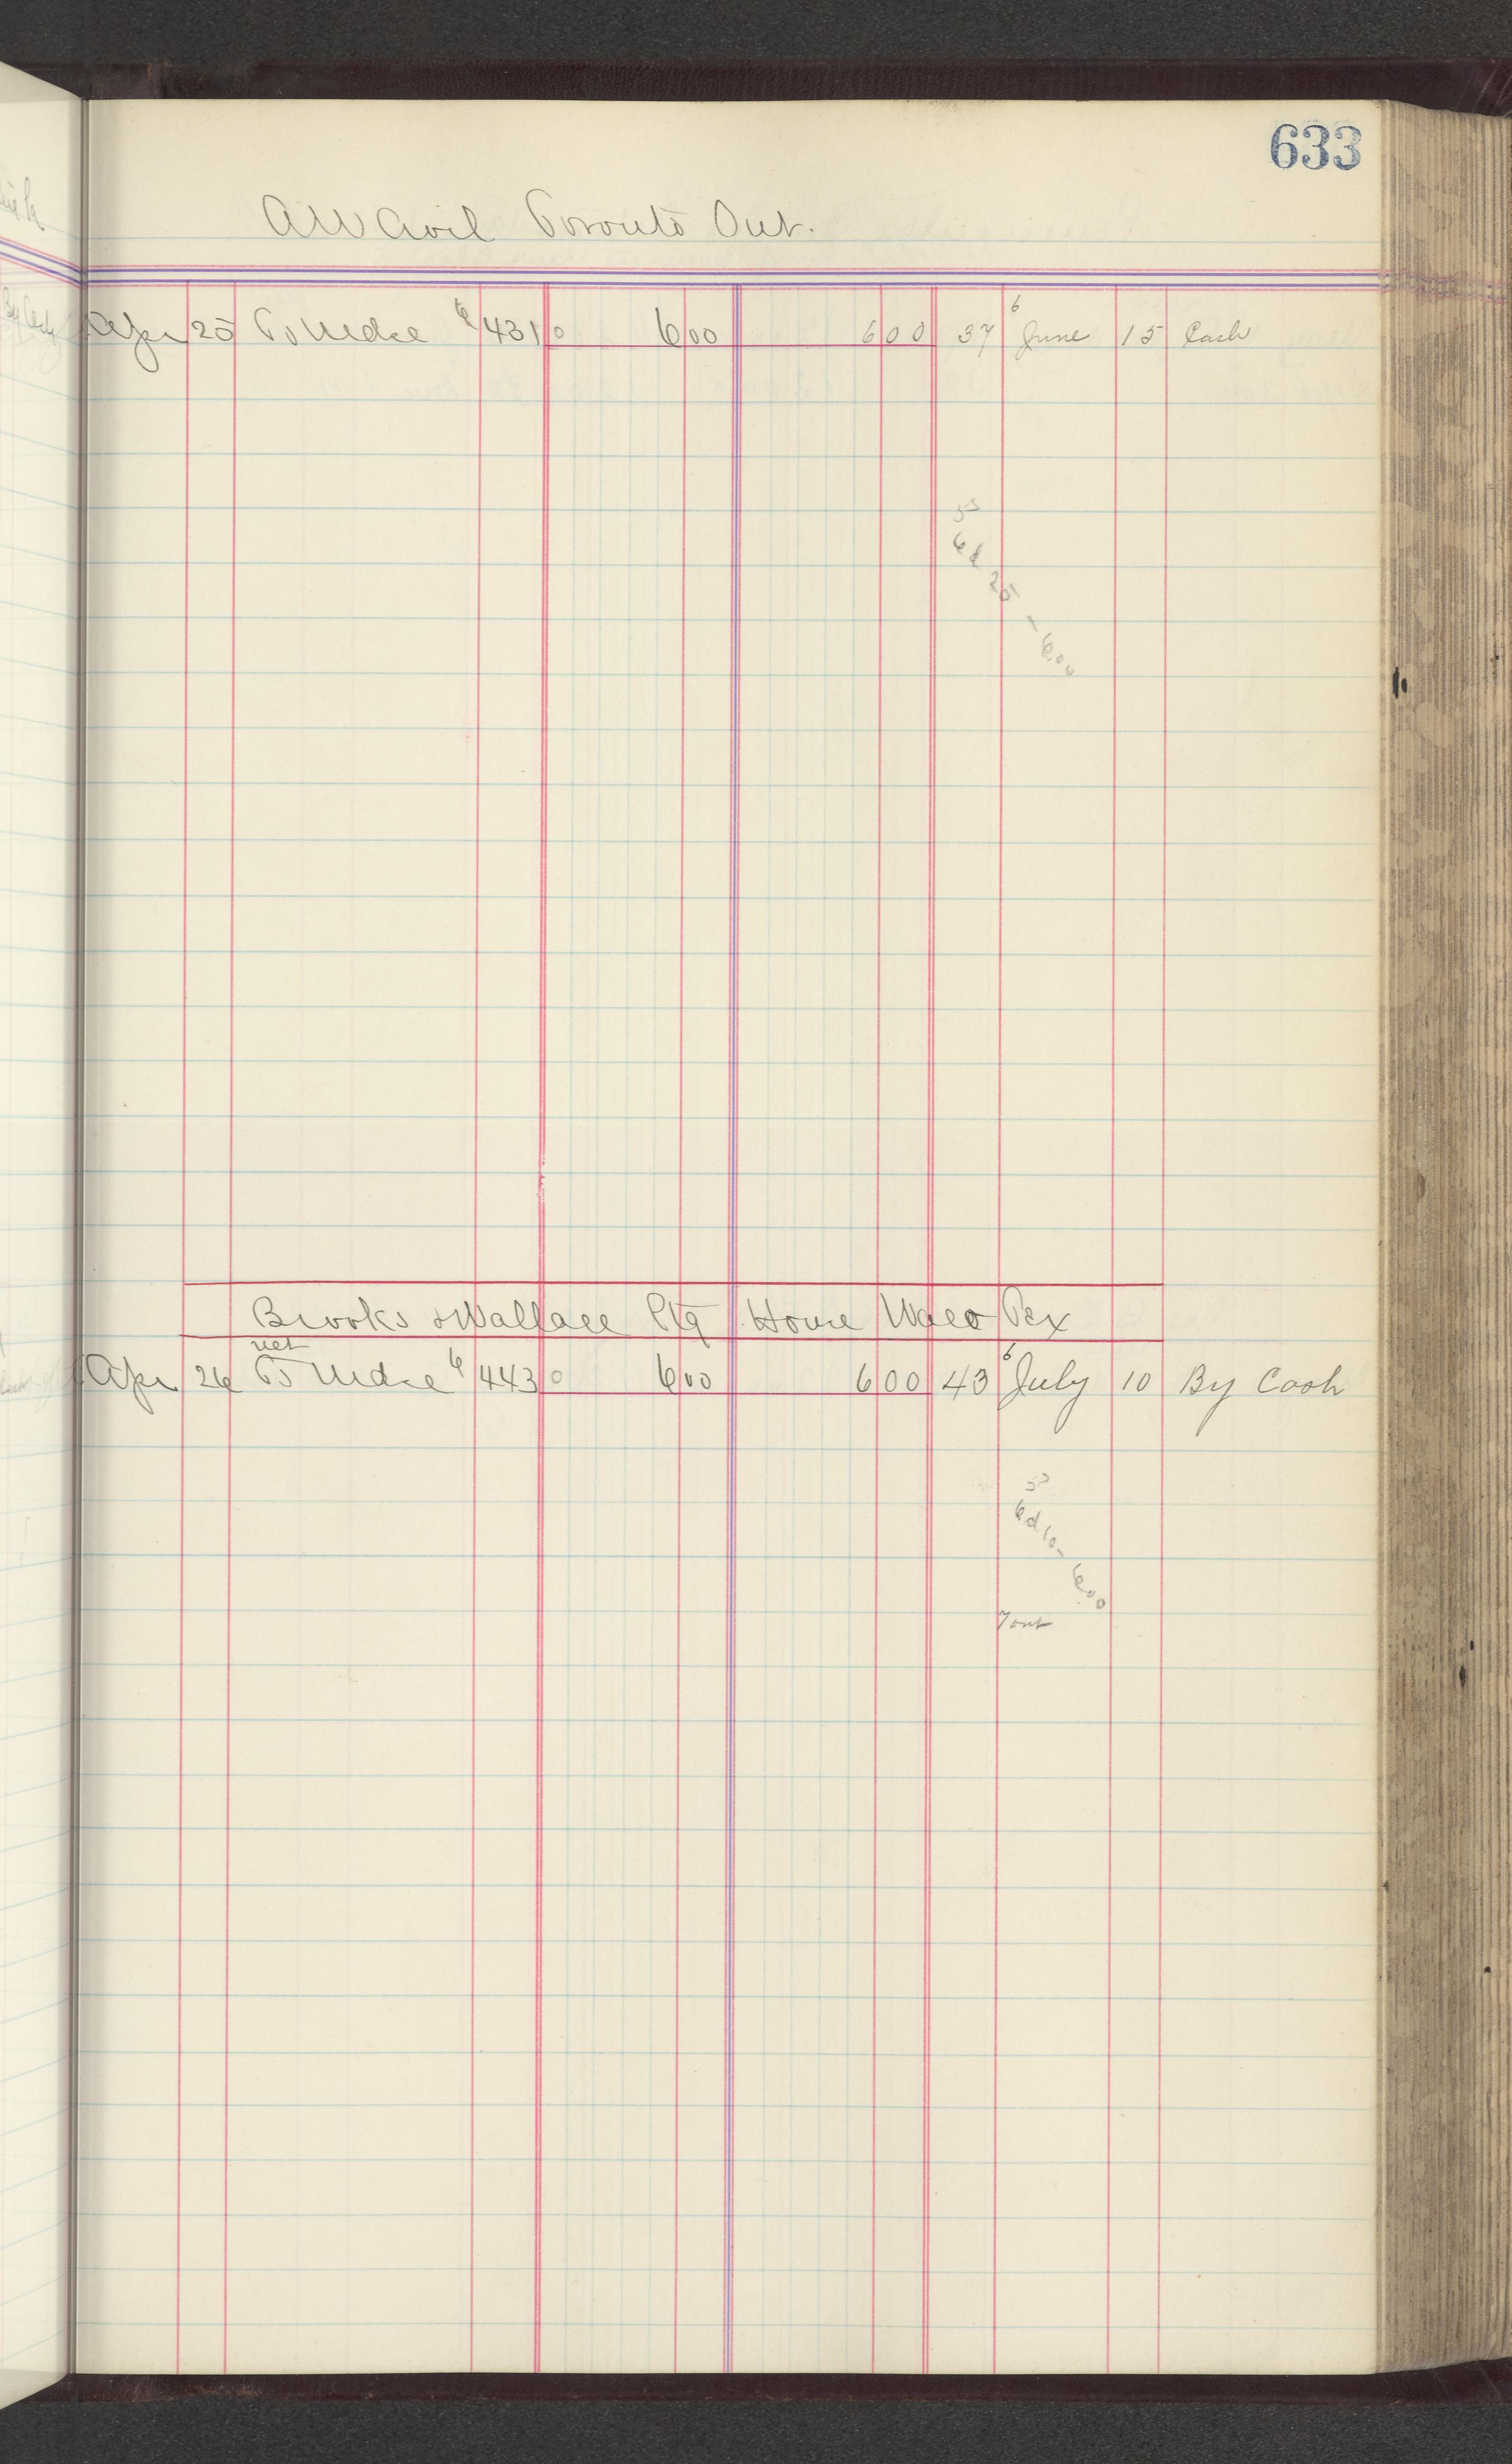 633
AW Avil Toronto Ont.
Apr 25 To Mdse 6 431 0 600 600 37 6 June 15 Cash
53
6d 25 - 6.00
Brooks & Wallace Ptg House Waco Tex
net
Apr 26 To Mdse 6 443 0 600 600 43 6 July 10 By Cash
53
6d 10- 6.00